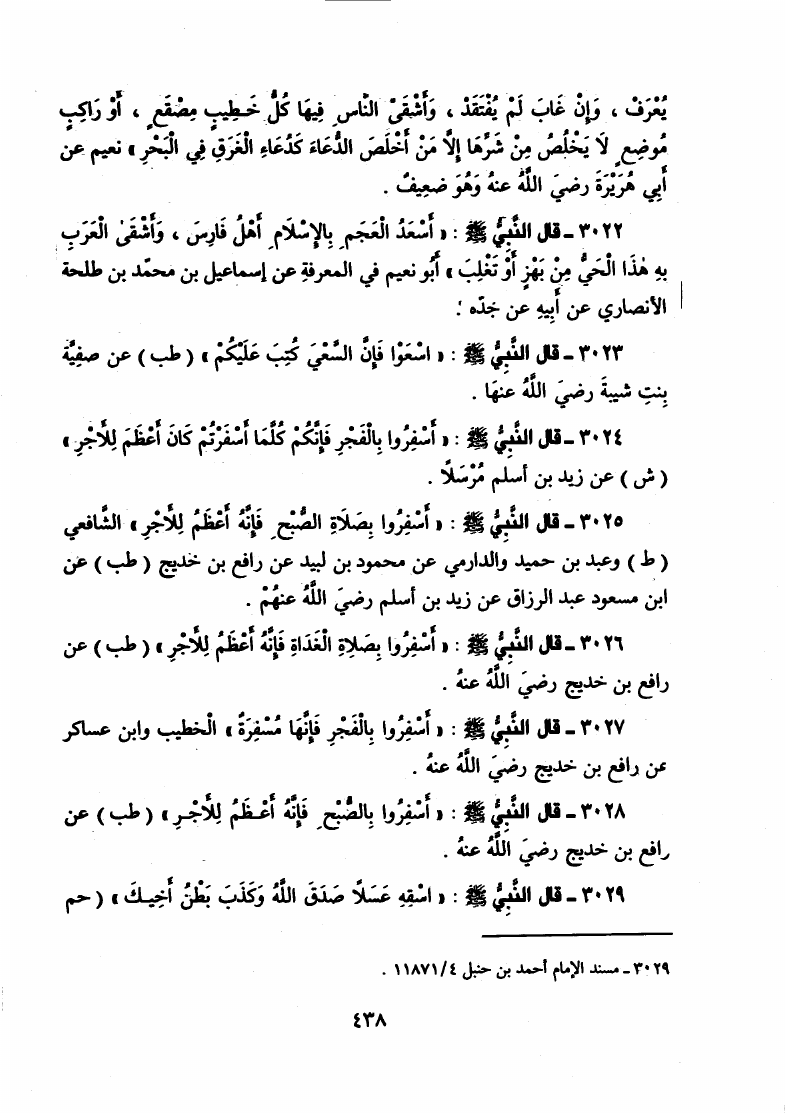 يُعْرَفْ ، وَإِنْ غَابَ لَمْ يُفْتَقَدْ ، وَأَشْقَىٰ النَّاسِ فِيهَا كُلُّ خَطِيبٍ مِصْقَعٍ ، أَوْ رَاكِبٍ
مُوضِعٍ لَا يَخْلُصُ مِنْ شَرِّهَا إِلَّا مَنْ أَخْلَصَ الدُّعَاءَ كَدُعَاءِ الْغَرَقِ فِي الْبَحْرِ » نعيم عن
أَبِي هُرَيْرَةَ رضيَ اللَّهُ عنهُ وَهُوَ ضَعِيفٌ .
٣٠٢٢ - قال النَّبِيُّ ﷺ : « أَسْعَدُ الْعَجَمِ بِالإِسْلَامِ أَهْلُ فَارِسَ ، وَأَشْقَىٰ الْعَرَبِ
بِهِ هٰذَا الْحَيُّ مِنْ بَهْزٍ أَوْ تَغْلِبَ » أَبُو نعيم في المعرفةِ عن إسماعيل بن محمّد بن طلحة
الأنصاري عن أَبِيهِ عن جَدّه ؛
٣٠٢٣ - قال النَّبِيُّ ﷺ : « اسْعَوْا فَإِنَّ السَّعْيَ كُتِبَ عَلَيْكُمْ » ( طب ) عن صفِيَّة
بِنتِ شيبةَ رضيَ اللَّهُ عنهَا .
٣٠٢٤ - قال النَّبِيُّ ﷺ : « أَسْفِرُوا بِالْفَجْرِ فَإِنَّكُمْ كُلَّمَا أَسْفَرْتُمْ كَانَ أَعْظَمَ لِلأَجْرِ »
( ش ) عن زيد بن أسلم مُرْسَلًا .
٣٠٢٥ - قال النَّبِيُّ ﷺ : « أَسْفِرُوا بِصَلَاةِ الصُّبْحِ فَإِنَّهُ أَعْظَمُ لِلأَجْرِ » الشَّافعي
( ط ) وعبد بن حميد والدارمي عن محمود بن لبيد عن رافع بن خديج ( طب ) عن
ابن مسعود عبد الرزاق عن زيد بن أسلم رضيَ اللَّهُ عنهُمْ .
٣٠٢٦ - قال النَّبِيُّ ﷺ : « أَسْفِرُوا بِصَلَاةِ الْغَدَاةِ فَإِنَّهُ أَعْظَمُ لِلأَجْرِ » ( طب ) عن
رافع بن خديج رضيَ اللَّهُ عنهُ .
٣٠٢٧ - قال النَّبِيُّ ﷺ : « أَسْفِرُوا بِالْفَجْرِ فَإِنَّهَا مُسْفِرَةٌ » الْخطيب وابن عساكر
عن رافع بن خديج رضيَ اللَّهُ عنهُ .
٣٠٢٨ - قال النَّبِيُّ ﷺ : « أَسْفِرُوا بِالصُّبْحِ فَإِنَّهُ أَعْظَمُ لِلأَجْرِ » ( طب ) عن
رافع بن خديج رضيَ اللَّهُ عنهُ .
٣٠٢٩ - قال النَّبِيُّ ﷺ : « اسْقِهِ عَسَلًا صَدَقَ اللَّهُ وَكَذَبَ بَطْنُ أَخِيكَ » ( حم
٣٠٢٩ - مسند الإمام أحمد بن حنبل ١١٨٧١/٤ .
٤٣٨